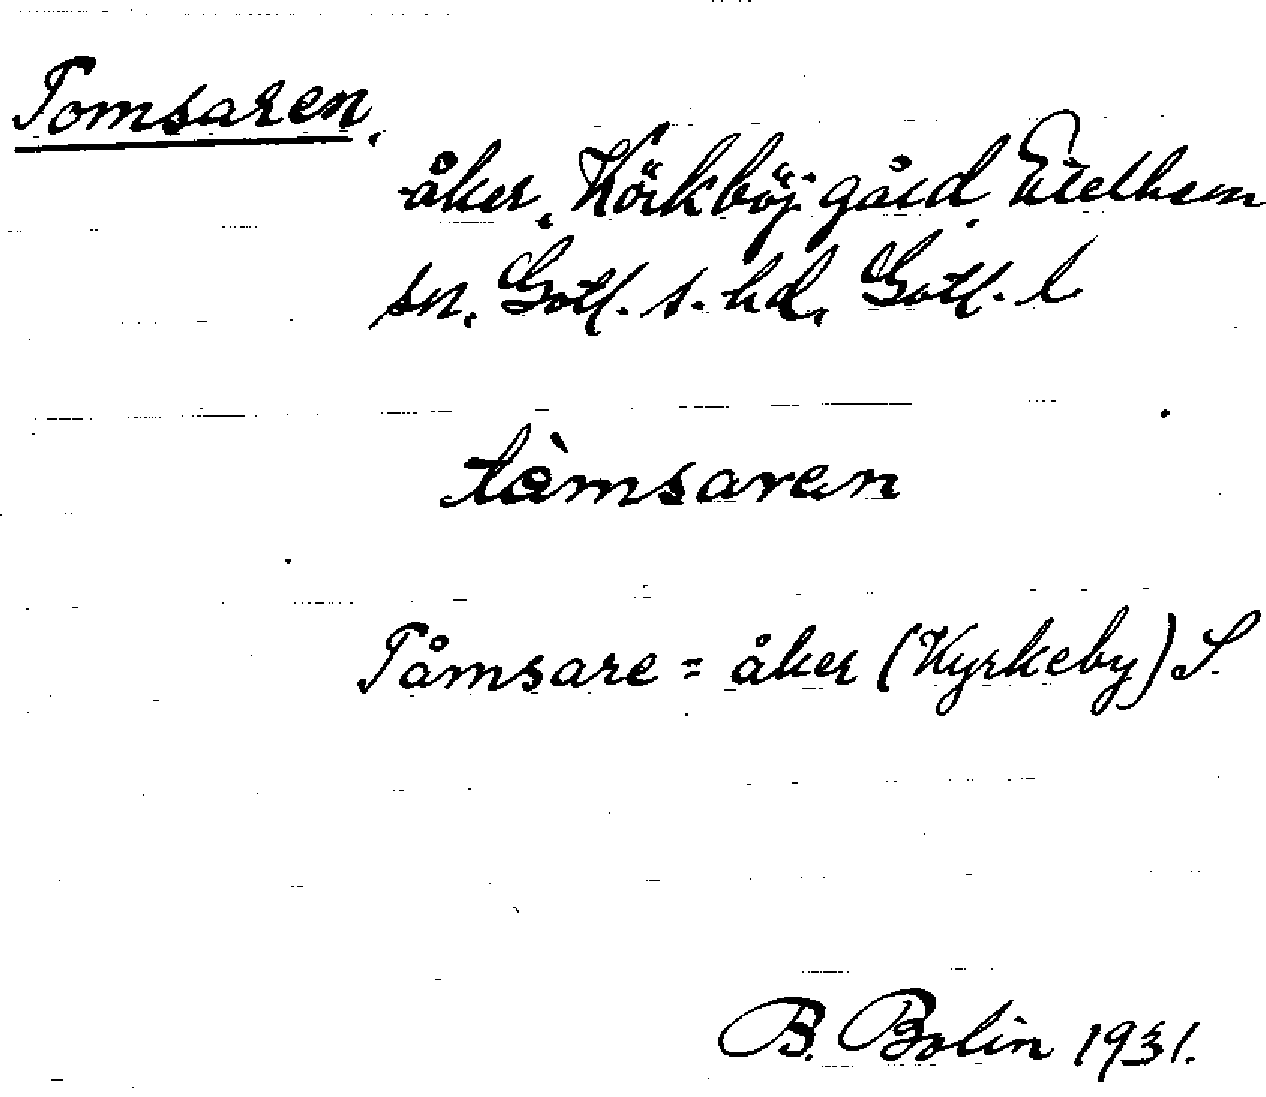 Tomsaren,
åker, Körkböj gård, Etelhem
sn, Gotl. s. hd, Gotl. l
tòmsaren
Tåmsare = åker (Kyrkeby) S.
B. Bolin 1931.